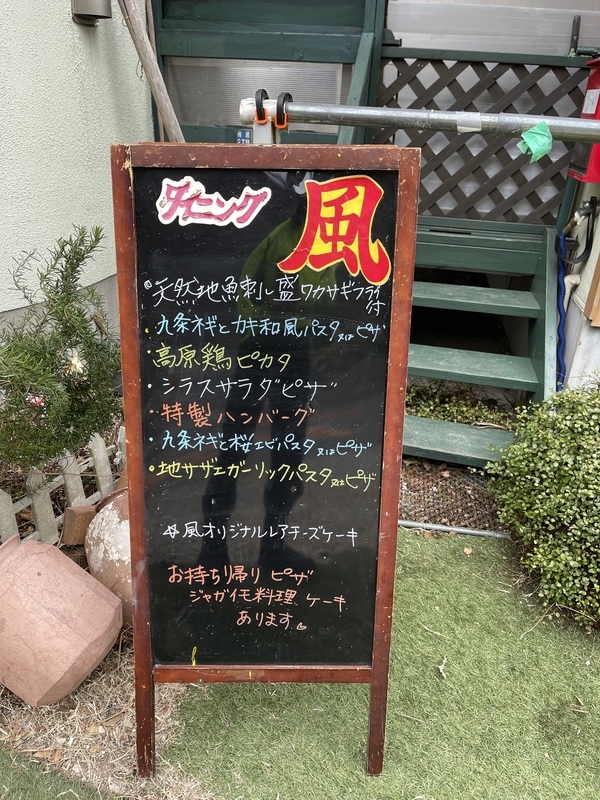 ダイニング 風
天然地魚刺し盛ワカサギフライ付
・九条ネギとカキ和風パスタ又はピザ
・高原鶏ピカタ
・シラスサラダピザ
・特製ハンバーグ
・九条ネギと桜エビパスタ又はピザ
・地サザエガーリックパスタ又はピザ
☆風オリジナルレアチーズケーキ
お持ち帰り ピザ
ジャガイモ料理 ケーキ
あります。